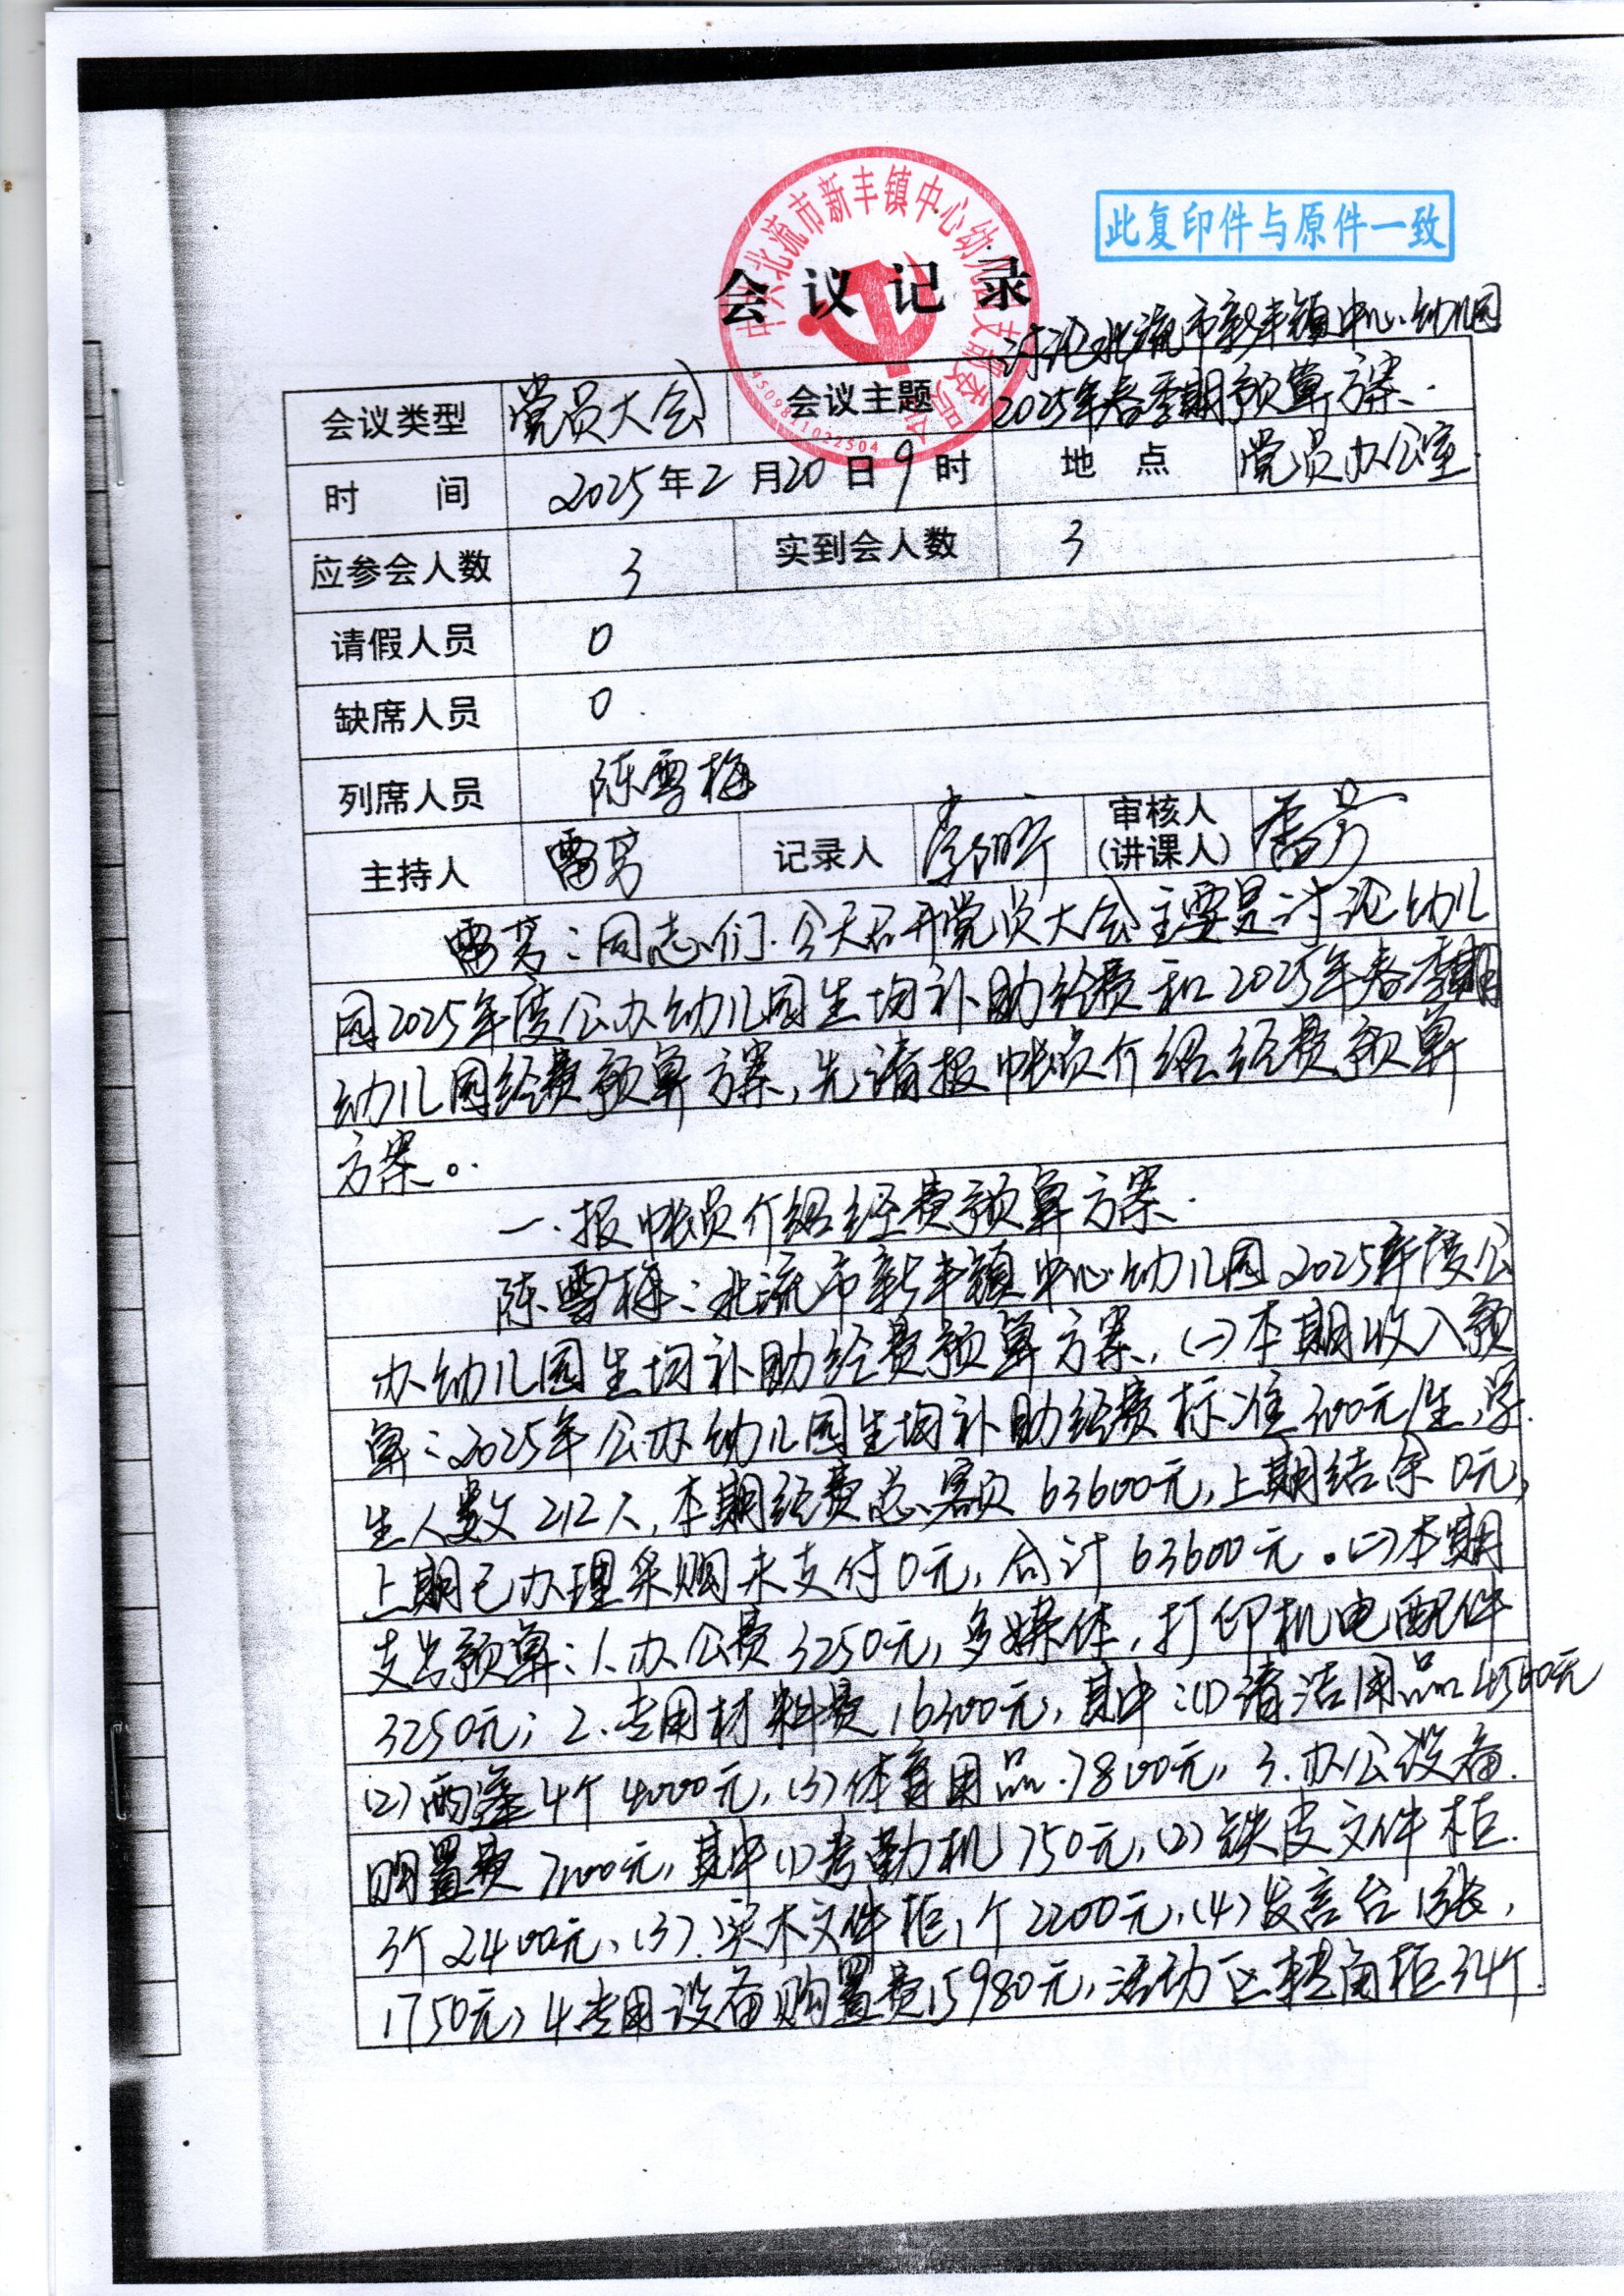 中共北流市新丰镇中心幼儿园支部委员会
4509811022504
此复印件与原件一致
会议记录
讨论北流市新丰镇中心幼儿园
会议类型 党员大会 会议主题 2025年春季期预算方案.
时间 2025年2月20日9时 地点 党员办公室
应参会人数 3 实到会人数 3
请假人员 0
缺席人员 0.
列席人员 陈雪梅
主持人 雷芳 记录人 审核人(讲课人) 雷芳
雷芳:同志们.今天召开党员大会主要是讨论幼儿
园2025年度公办幼儿园生均补助经费和2025年春季期
幼儿园经费预算方案,先请报帐员介绍经费预算
方案。
一.报帐员介绍经费预算方案.
陈雪梅:北流市新丰镇中心幼儿园2025年度公
办幼儿园生均补助经费预算方案,(一)本期收入预
算:2025年公办幼儿园生均补助经费标准300元/生,学
生人数212人,本期经费总额63600元,上期结余0元,
上期已办理采购未支付0元,合计63600元。(二)本期
支出预算:1.办公费3250元,多媒体,打印机电配件
3250元;2.专用材料费16300元,其中:(1)清洁用品4500元
(2)雨篷4个4000元,(3)体育用品.7800元,3.办公设备.
购置费7100元,其中(1)考勤机750元,(2)铁皮文件柜.
3个2400元,(3).实木文件柜1个2200元,(4)发言台1张,
1750元;4.专用设备购置费15980元,活动区转角柜34个.